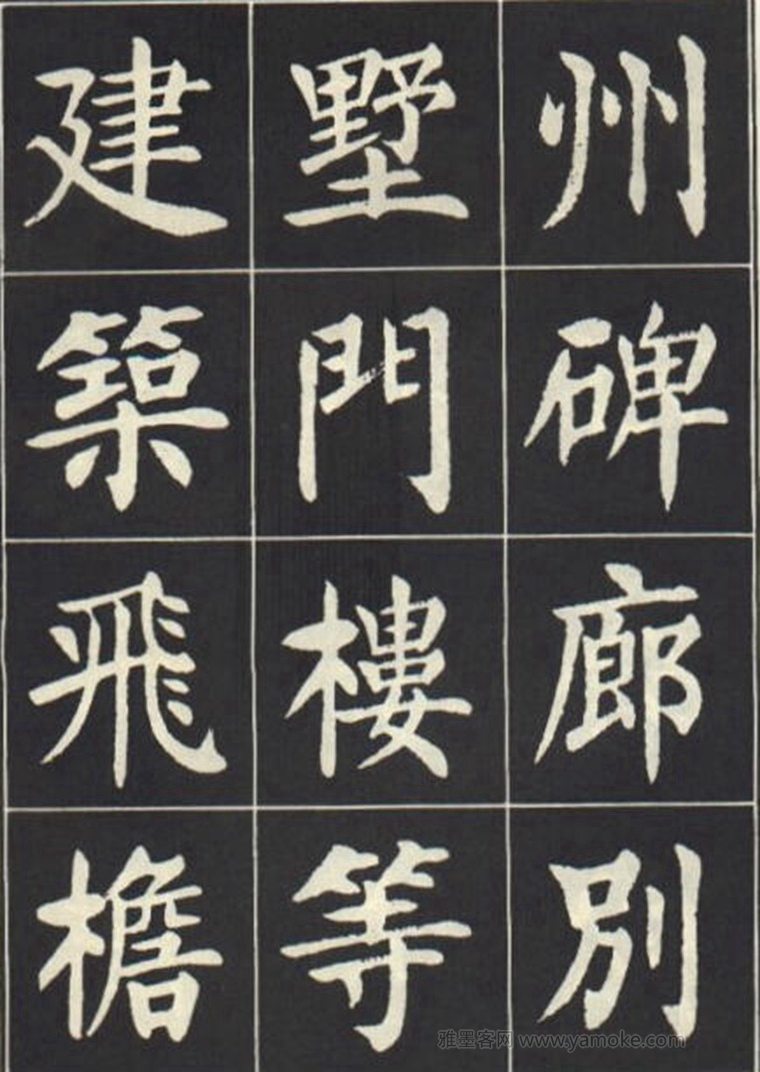 州碑廊別
墅門樓等
建築飛檐
雅墨客网 www.yamoke.com